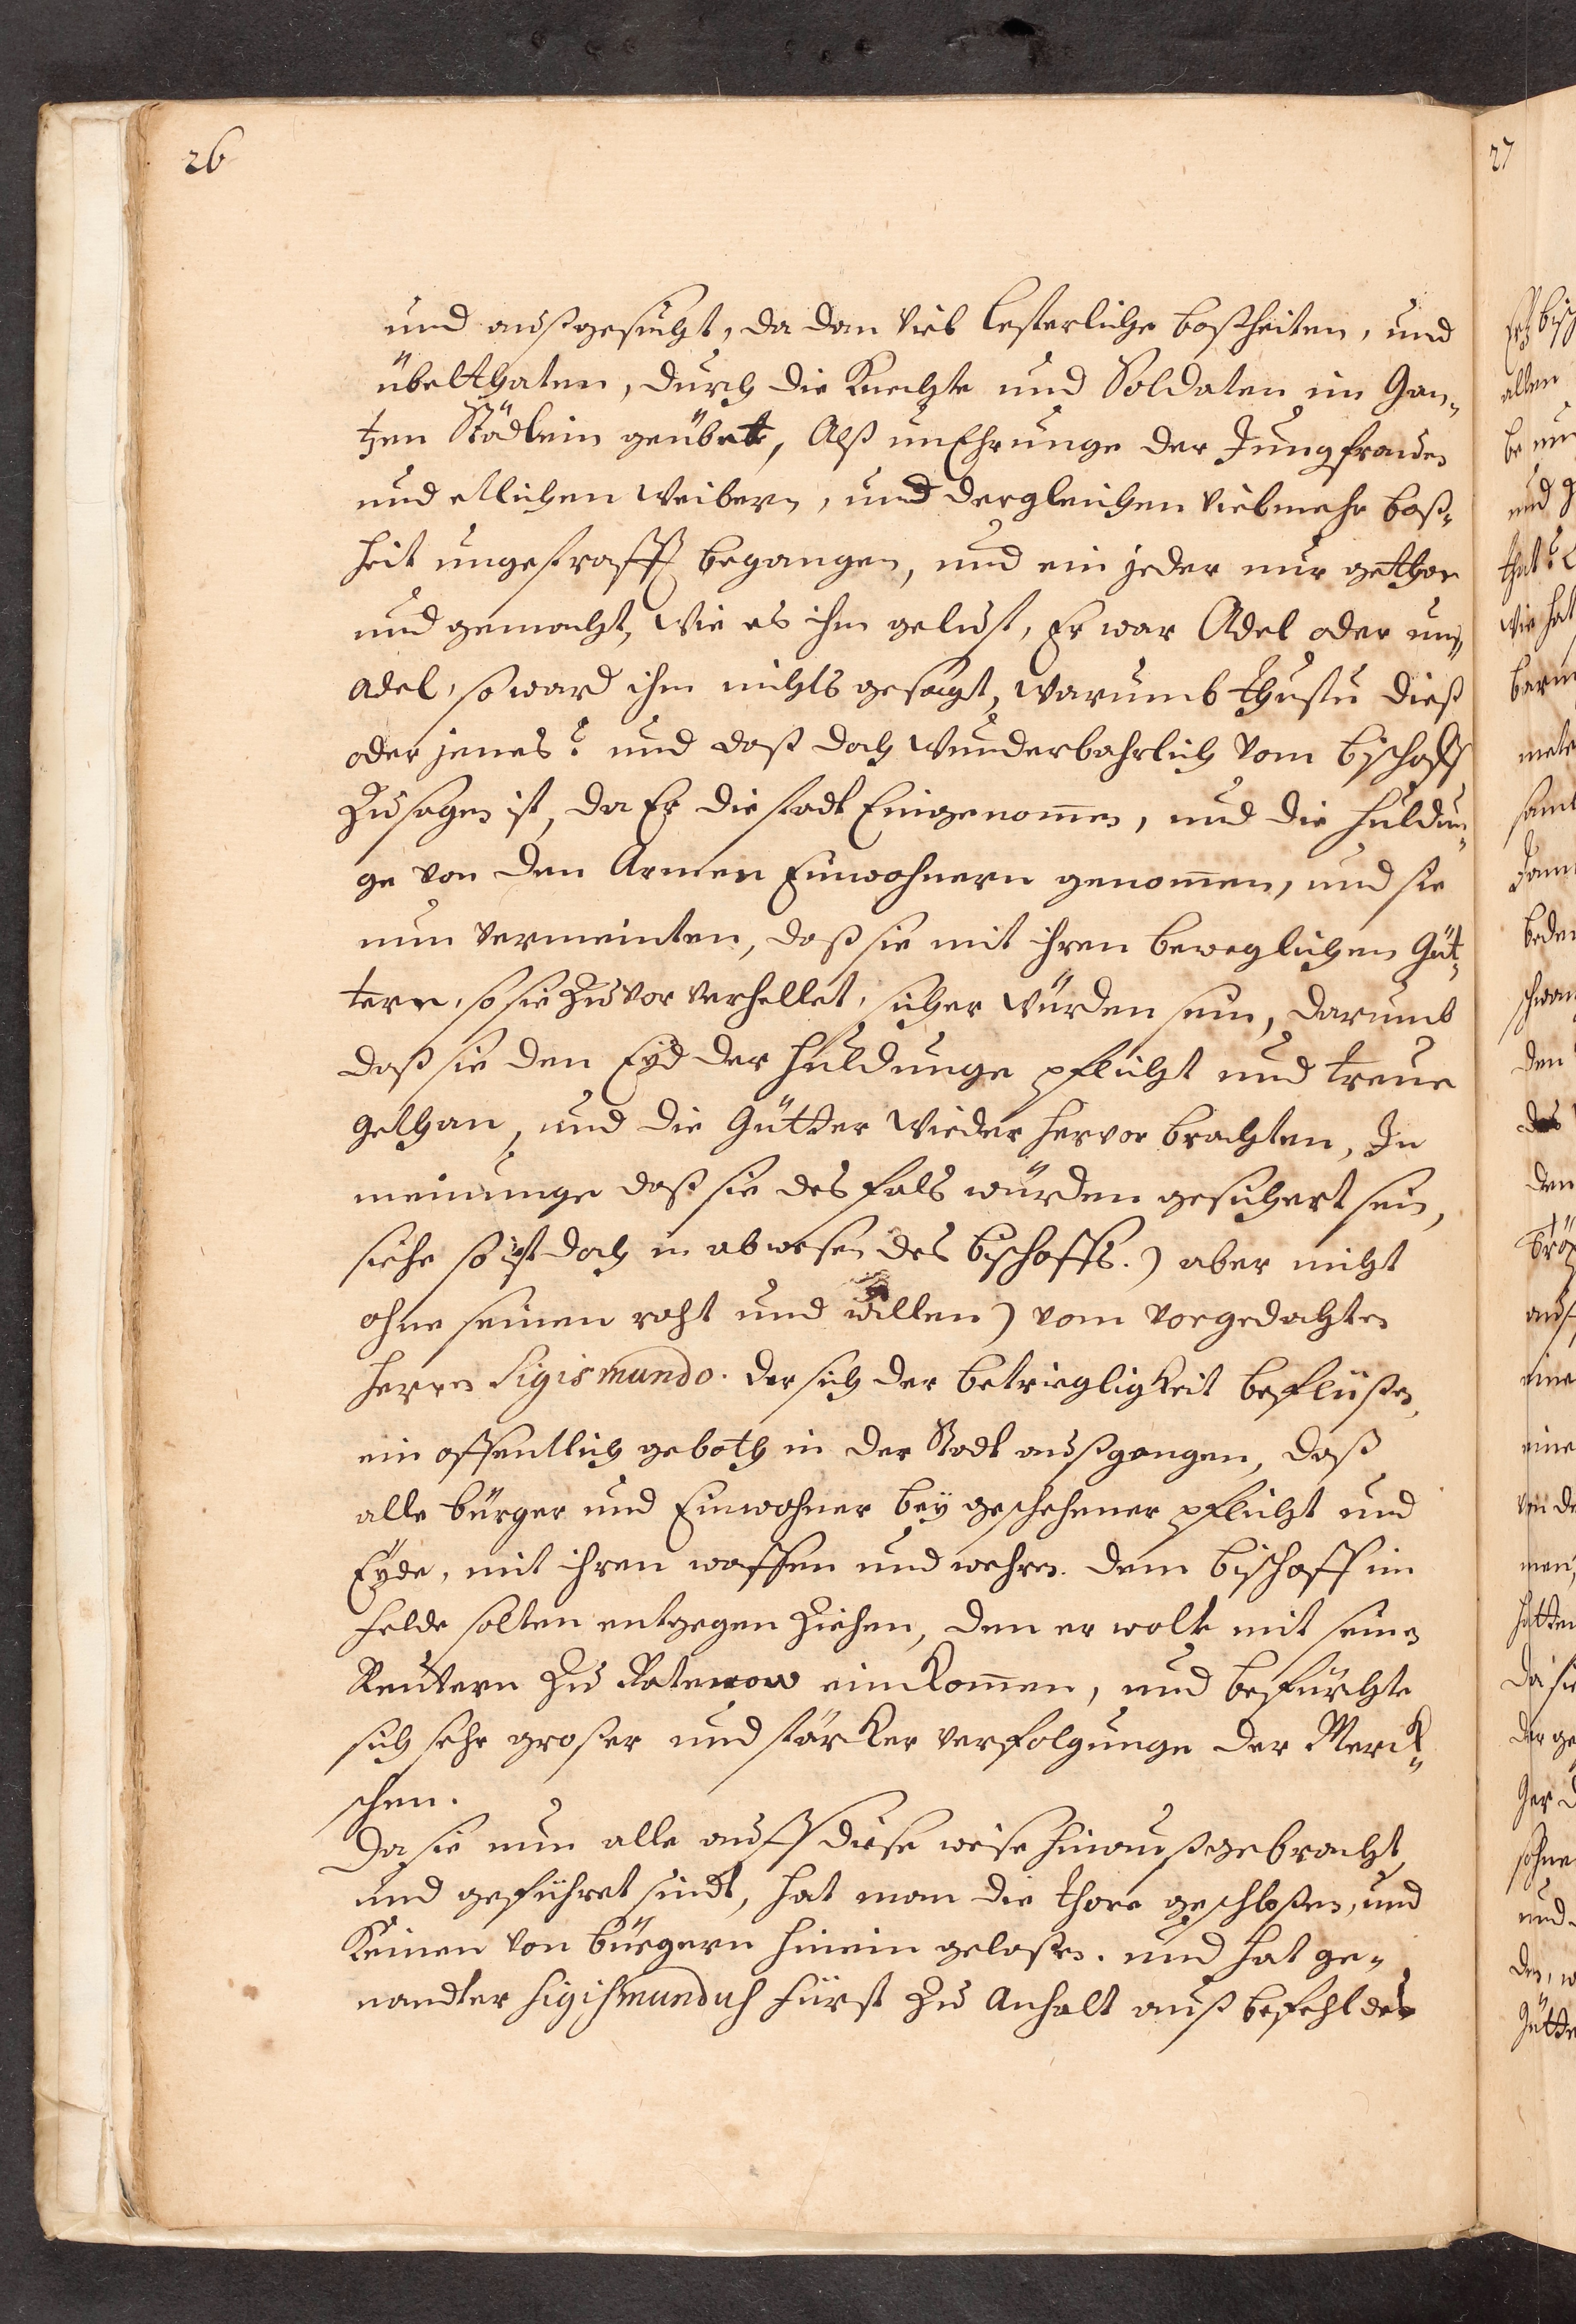 26
und außgesucht, da dan viel lesterliche boßheiten, und
übelthaten, durch die Knechte und Soldaten im Gan„
tzen Städlein geübet, Alß unEhrunge der Jungfrauen
und etlichen Weibern, und dergleichen vielmehr boß„
heit ungestrafft begangen, und ein jeder nur gethan
und gemacht, wie es ihm gelust, Er war Adel oder un„
adel, so ward ihm nichts gesagt, warumb thustu dieß
oder jenes? und daß doch wunderbahrlich vom bischoff
zu sagen ist, da Er die stadt Eingenom̄en, und die huldun„
ge von den Armen Einwohnern genom̄en, und sie
nun vermeinten, daß sie mit ihren beweglichen Güt„
tern, so sie zu vor verhellet, sicher würden sein, darumb
daß sie den Eyd der huldunge pflicht und treue
gethan, und die Gütter wieder hervor brachten, In
meinunge daß sie des fals würden gesichert sein,
siehe so ist doch in abwesen des bischoffs.) aber nicht
ohne seinen raht und willen) vom vorgedachten
herrn Sigismundo. der sich der betriegligkeit beflüßen,
ein offentlich geboth in der Stadt außgangen, daß
alle bürger und Einwohner bey geschehener pflicht und
Eyde, mit ihren waffen und wehren. dem bischoff im
felde solten entgegen ziehen, den er wolte mit seinen
Reutern zu Ratenow einkom̄en, und befürchte
sich sehr großer und starker verfolgunge der Merck„
schen.
Da sie nun alle auff diese weise hinaußgebracht,
und geführet sindt, hat man die thore geschloßen, und
Keinen von bürgern hinein gelaßen. und hat ge„
nandter Sigismundus Fürst zu Anhalt auß befehl des
27
allen
und g
that?
wie hat
den
eine
hatten
da sie
der ge
und